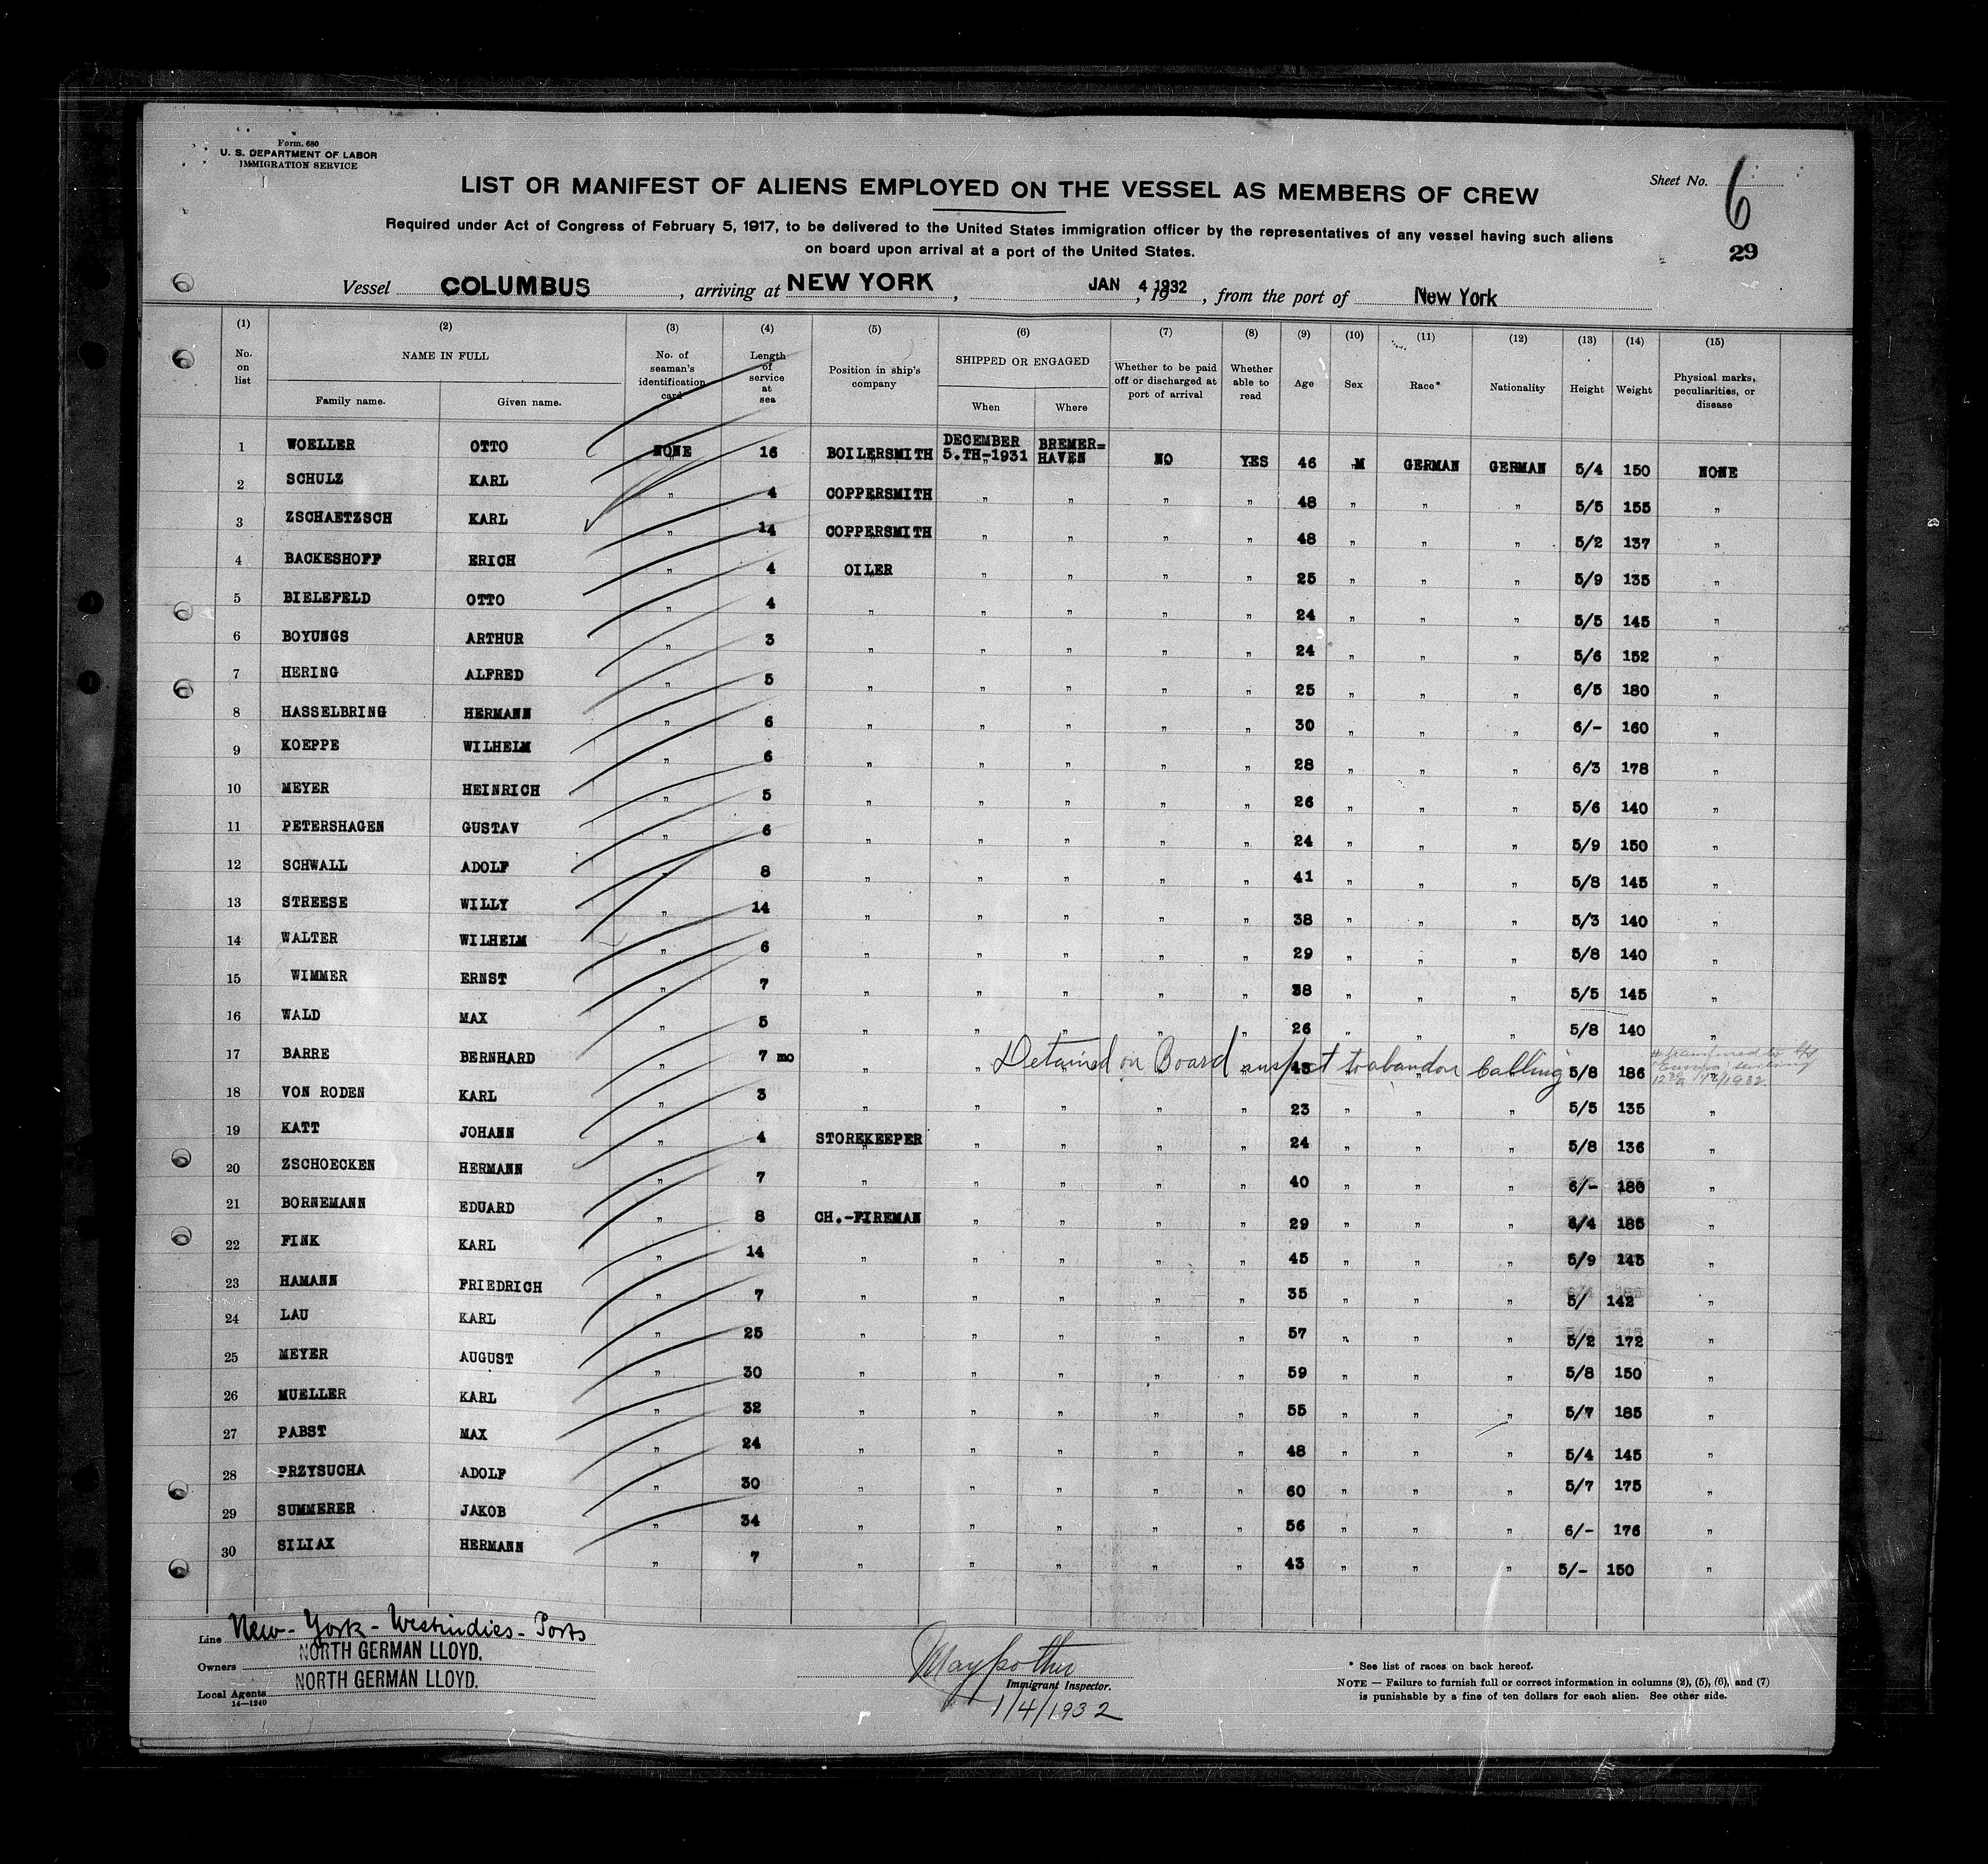 Form. 680
U. S. DEPARTMENT OF LABOR
IMMIGRATION SERVICE
Sheet No. 6
29
LIST OR MANIFEST OF ALIENS EMPLOYED ON THE VESSEL AS MEMBERS OF CREW
Required under Act of Congress of February 5, 1917, to be delivered to the United States immigration officer by the representatives of any vessel having such aliens
on board upon arrival at a port of the United States.
Vessel COLUMBUS, arriving at NEW YORK, JAN 4 1932, 19, from the port of New York
(1) (2) (3) (4) (5) (6) (7) (8) (9) (10) (11) (12) (13) (14) (15)
No. on list
NAME IN FULL
Family name. Given name.
No. of seaman's identification card
Length of service at sea
Position in ship's company
SHIPPED OR ENGAGED
When Where
Whether to be paid off or discharged at port of arrival
Whether able to read
Age
Sex
Race*
Nationality
Height
Weight
Physical marks, peculiarities, or disease
1 WOELLER OTTO NONE 16 BOILERSMITH DECEMBER 5.TH-1931 BREMER=HAVEN NO YES 46 M GERMAN GERMAN 5/4 150 NONE
2 SCHULZ KARL " 4 COPPERSMITH " " " " 48 " " " 5/5 155 "
3 ZSCHAETZSCH KARL " 14 COPPERSMITH " " " " 48 " " " 5/2 137 "
4 BACKESHOFF ERICH " 4 OILER " " " " 25 " " " 5/9 135 "
5 BIELEFELD OTTO " 4 " " " " " 24 " " " 5/5 145 "
6 BOYUNGS ARTHUR " 3 " " " " " 24 " " " 5/6 152 "
7 HERING ALFRED " 5 " " " " " 25 " " " 6/5 180 "
8 HASSELBRING HERMANN " 6 " " " " " 30 " " " 6/- 160 "
9 KOEPPE WILHELM " 6 " " " " " 28 " " " 6/3 178 "
10 MEYER HEINRICH " 5 " " " " " 26 " " " 5/6 140 "
11 PETERSHAGEN GUSTAV " 6 " " " " " 24 " " " 5/9 150 "
12 SCHWALL ADOLF 8 " " " " " 41 " " " 5/8 145 "
13 STREESE WILLY " 14 " " " " " 38 " " " 5/3 140 "
14 WALTER WILHELM 6 " " " " " 29 " " " 5/8 140 "
15 WIMMER ERNST " 7 " " " " " 38 " " " 5/5 145 "
16 WALD MAX " 5 " " " " " 26 " " " 5/8 140 "
17 BARRE BERNHARD " 7 mo " " Detained on Board suspect to abandon Calling 5/8 186 transferred to
12 1932
18 VON RODEN KARL " 3 " " " " " 23 " " " 5/5 135 "
19 KATT JOHANN " 4 STOREKEEPER " " " " 24 " " " 5/8 136 "
20 ZSCHOECKEN HERMANN " 7 " " " " " 40 " " " 6/- 180 "
21 BORNEMANN EDUARD " 8 CH.-FIREMAN " " " " 29 " " " 185 "
22 FINK KARL " 14 " " " " " 45 " " " 5/9 145 "
23 HAMANN FRIEDRICH " 7 " " " " " 35 " " " 5/ 142 "
24 LAU KARL " 25 " " " " " 57 " " " 5/2 172 "
25 MEYER AUGUST " 30 " " " " " 59 " " " 5/8 150 "
26 MUELLER KARL " 32 " " " " " 55 " " " 5/7 185 "
27 PABST MAX " 24 " " " " " 48 " " " 5/4 145 "
28 PRZYSUCHA ADOLF " 30 " " " " " 60 " " " 5/7 175 "
29 SUMMERER JAKOB " 34 " " " " " 56 " " " 6/- 176 "
30 SILIAX HERMANN " 7 " " " " " 43 " " " 5/- 150 "
Line New-York-Westindies-Ports
Owners NORTH GERMAN LLOYD.
Local Agents NORTH GERMAN LLOYD.
14—1240
Immigrant Inspector.
1/4/1932
* See list of races on back hereof.
NOTE — Failure to furnish full or correct information in columns (2), (5), (6), and (7)
is punishable by a fine of ten dollars for each alien. See other side.